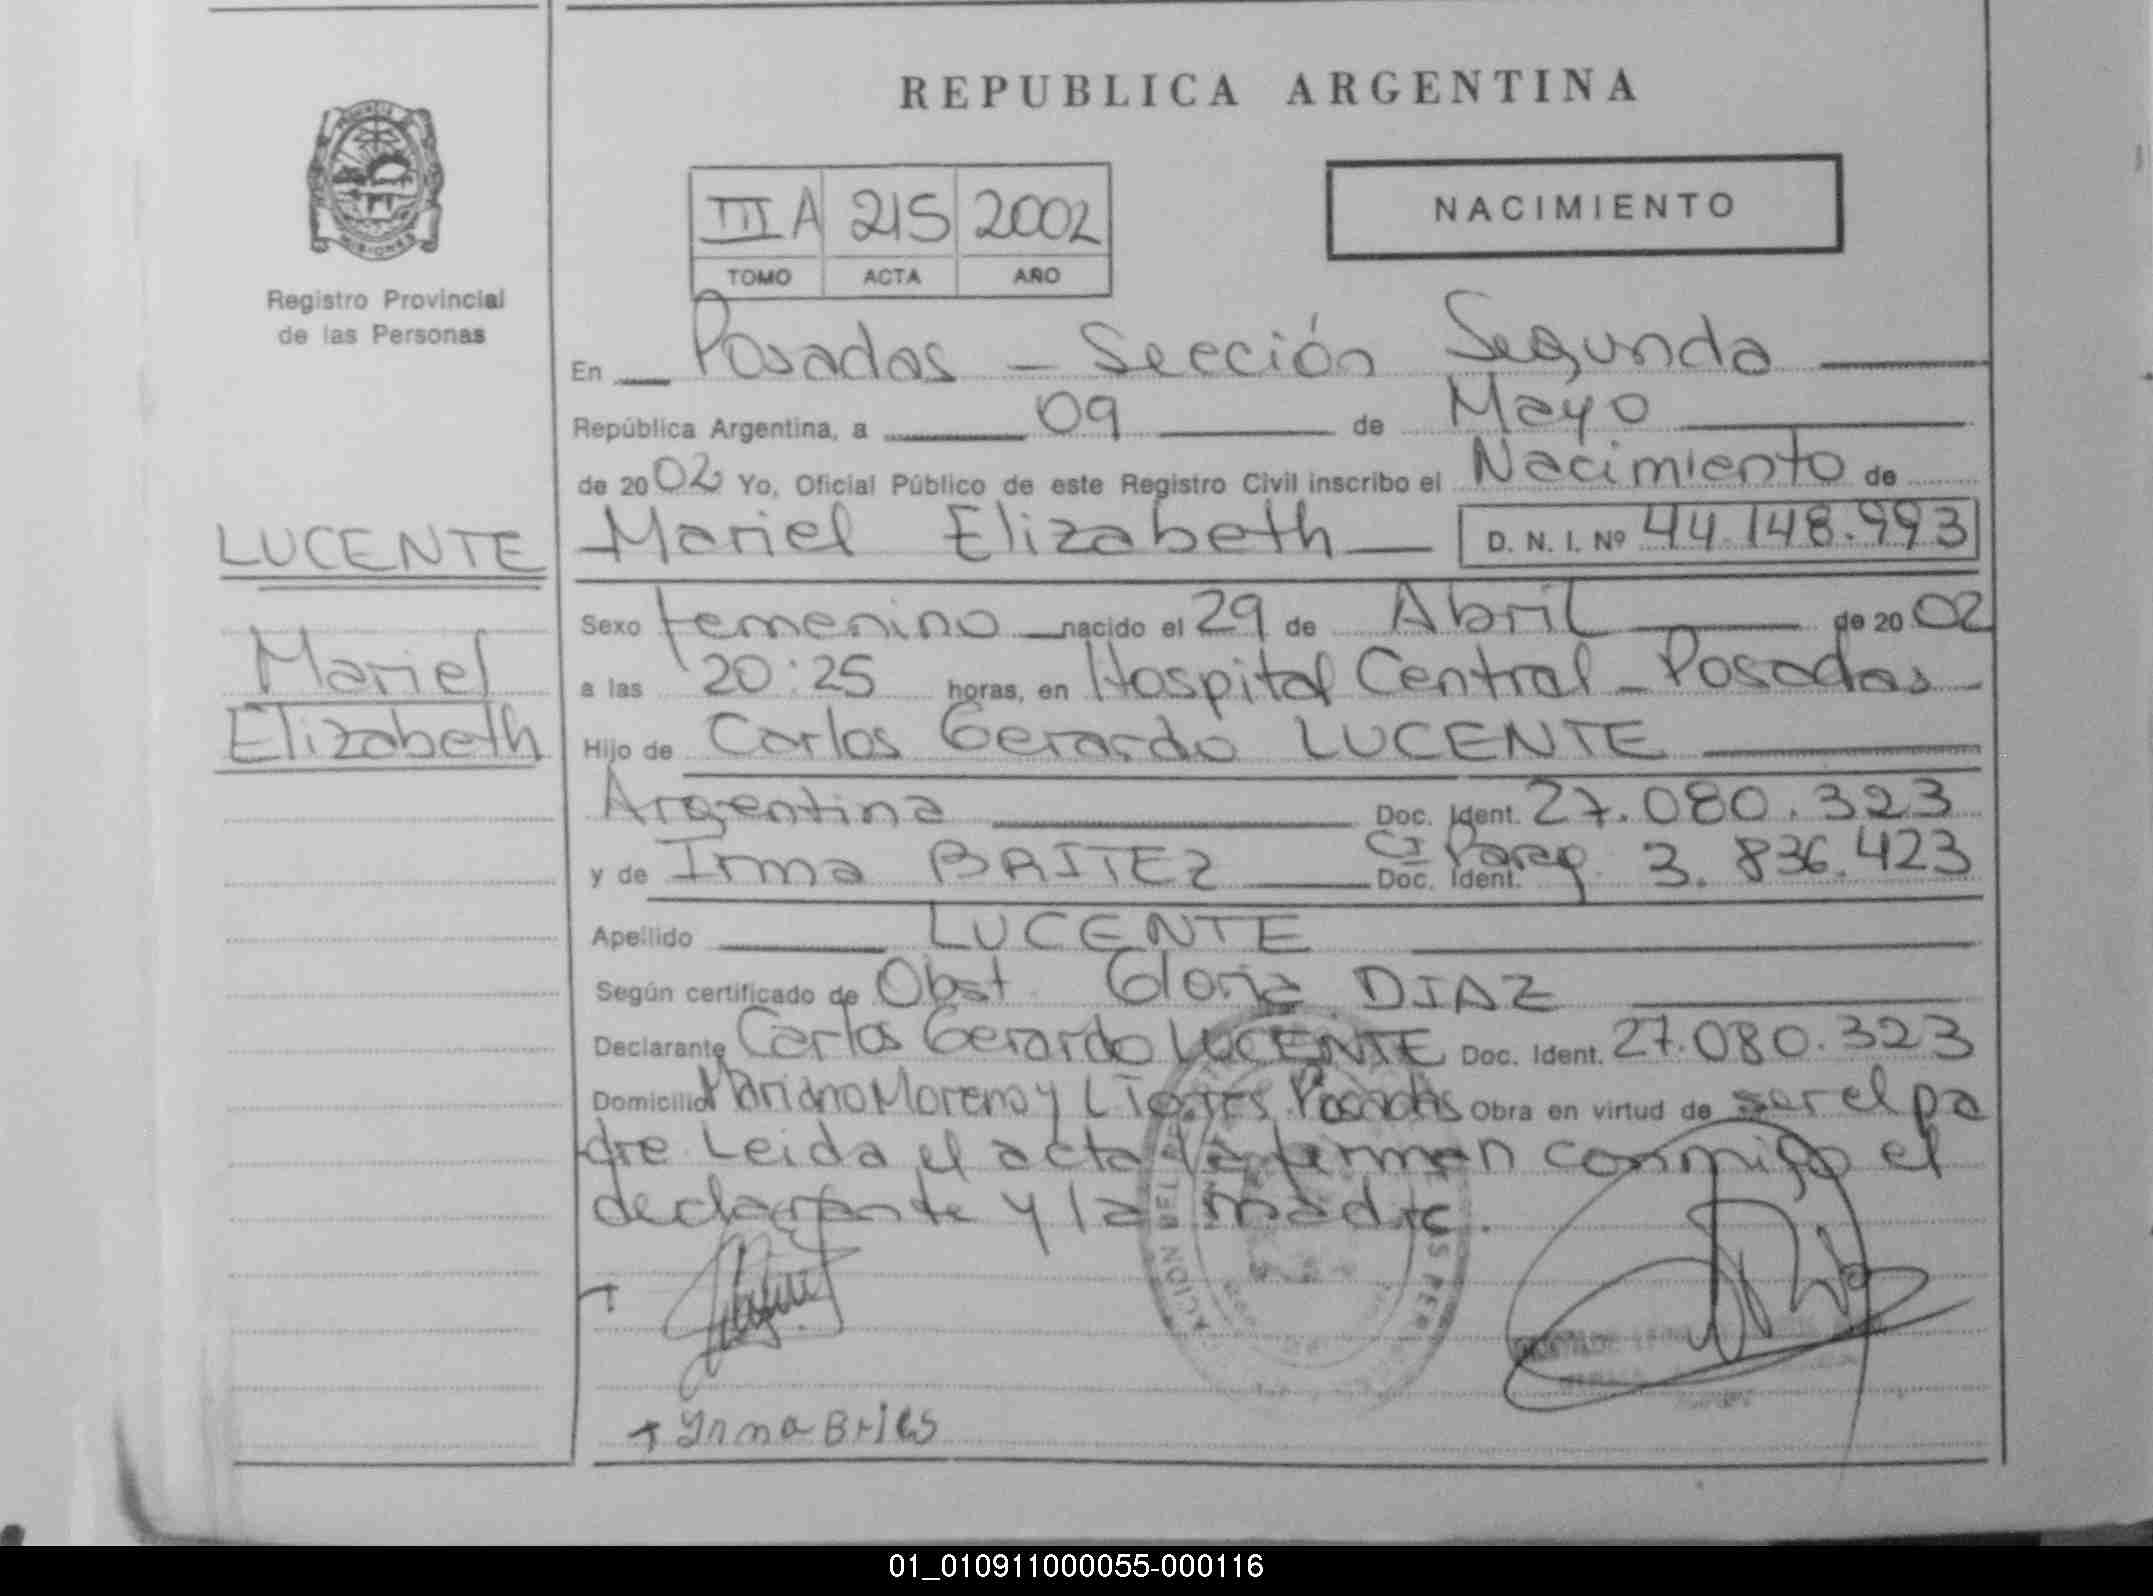 REPUBLICA ARGENTINA
PROVINCIA DE
MISIONES
Registro Provincial
de las Personas
III A 215 2002
TOMO ACTA AÑO
NACIMIENTO
En Posadas - Sección Segunda
República Argentina, a 09 de Mayo
de 2002 Yo, Oficial Público de este Registro Civil inscribo el Nacimiento de
LUCENTE
Mariel
Elizabeth
Mariel Elizabeth D. N. I. Nº 44.148.993
Sexo femenino nacido el 29 de Abril de 2002
a las 20:25 horas, en Hospital Central - Posadas -
Hijo de Carlos Gerardo LUCENTE
Argentina Doc. Ident. 27.080.323
y de Irma BRITEZ Doc. Ident. CI Parag. 3.836.423
Apellido LUCENTE
Según certificado de Obst. Gloria DIAZ
Declarante Carlos Gerardo LUCENTE Doc. Ident. 27.080.323
Domicilio Mariano Moreno y L Torres Posadas Obra en virtud de ser el pa
dre. Leida el acta la firman conmigo el
declarante y la madre.
Irma Bries
01_010911000055-000116